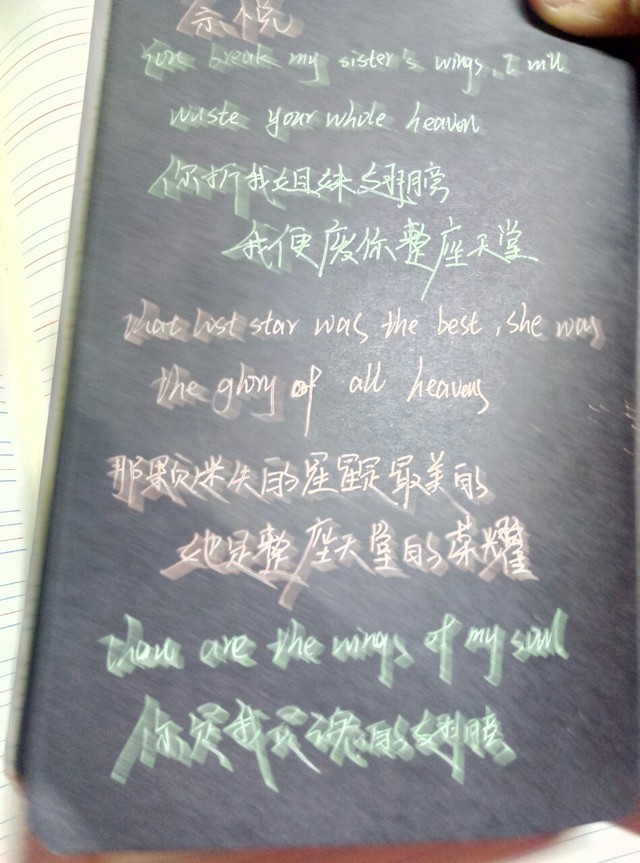 示悦
You break my sister's wings, I will
waste your whole heaven
你折我姐妹翅膀
我便废你整座天堂
that lost star was the best, she was
the glory of all heavens
那颗迷失的星星是最美的
她是整座天堂的荣耀
thou are the wings of my soul
你是我灵魂的翅膀